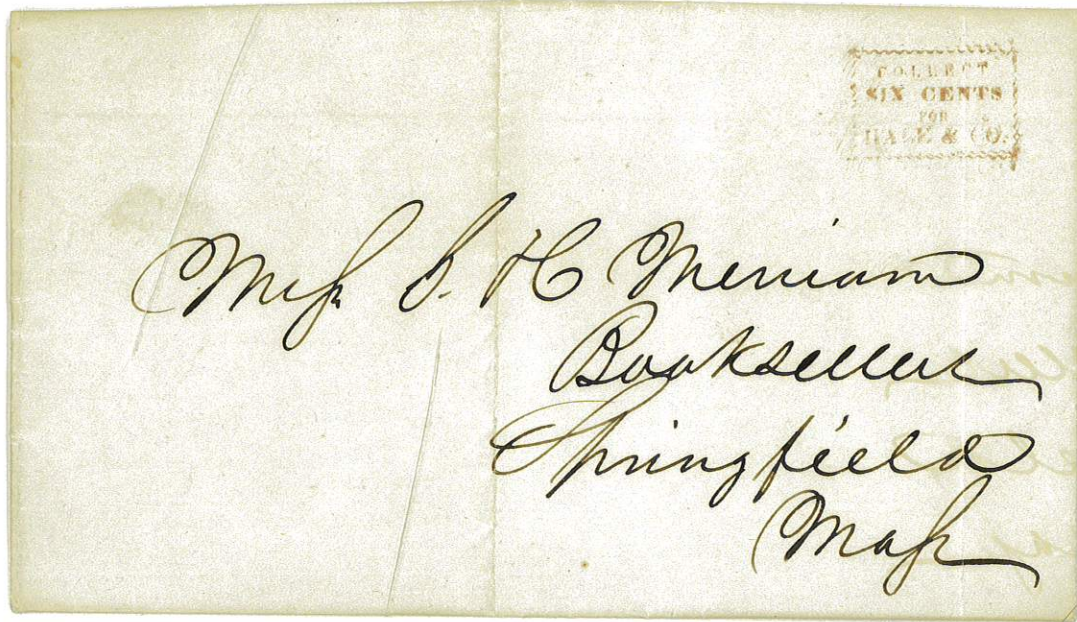 COLLECT
SIX CENTS
FOR
HALE & CO.
Mess
Merriam
Booksellers
Springfield
Mass